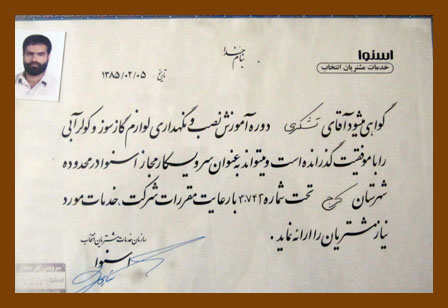 بنام خدا
اسنوا
خدمات مشتریان انتخاب
تاریخ ۱۳۸۵/۰۲/۰۵
گواهی میشود آقای تشکری دوره آموزش نصب و نگهداری لوازم گازسوز و کولر آبی
را با موفقیت گذرانده است و میتواند به عنوان سرویسکار مجاز اسنوا در محدوده
شهرستان کرج تحت شماره ۳۰۷۴۲ با رعایت مقررات شرکت، خدمات مورد
نیاز مشتریان را ارائه نماید .
سازمان خدمات مشتریان انتخاب
اسنوا